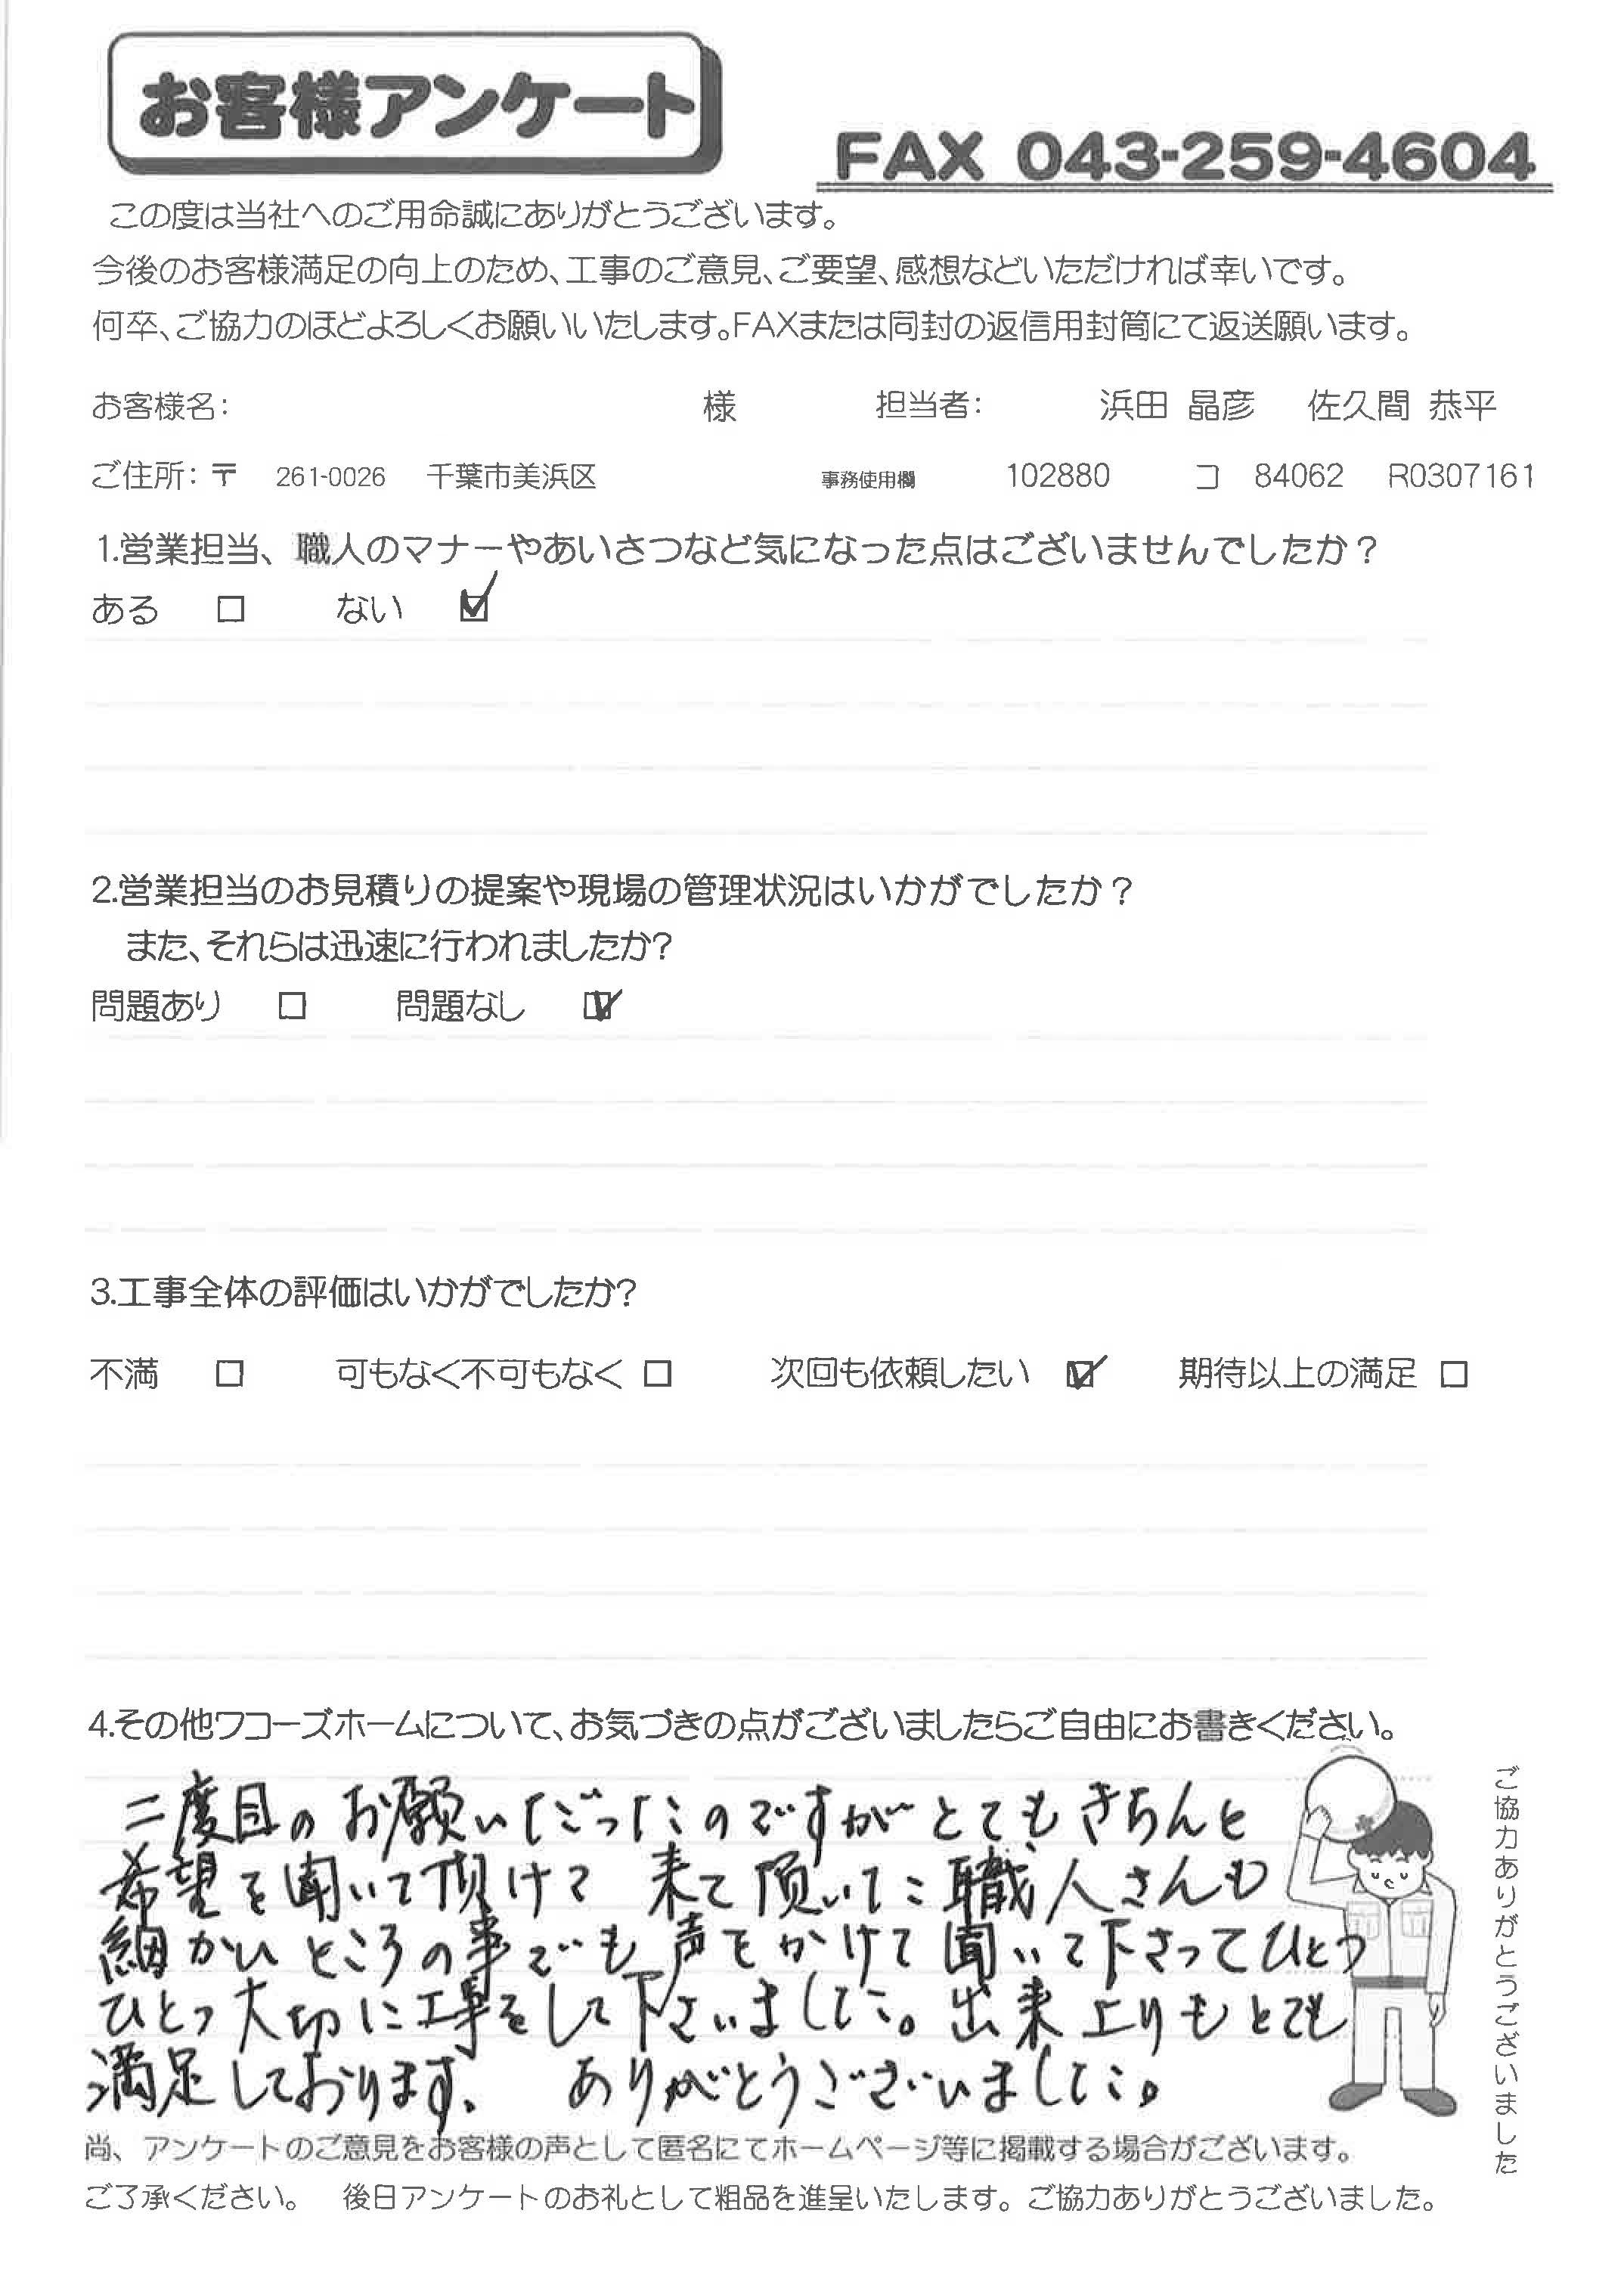 お客様アンケート
FAX 043-259-4604
この度は当社へのご用命誠にありがとうございます。
今後のお客様満足の向上のため、工事のご意見、ご要望、感想などいただければ幸いです。
何卒、ご協力のほどよろしくお願いいたします。FAXまたは同封の返信用封筒にて返送願います。
お客様名: 様 担当者: 浜田 晶彦 佐久間 恭平
ご住所:〒 261-0026 千葉市美浜区 事務使用欄 102880 コ 84062 R0307161
1.営業担当、職人のマナーやあいさつなど気になった点はございませんでしたか？
ある □ ない ☑
2.営業担当のお見積りの提案や現場の管理状況はいかがでしたか？
また、それらは迅速に行われましたか?
問題あり □ 問題なし ☑
3.工事全体の評価はいかがでしたか?
不満 □ 可もなく不可もなく □ 次回も依頼したい ☑ 期待以上の満足 □
4.その他ワコーズホームについて、お気づきの点がございましたらご自由にお書きください。
二度目のお願いだったのですがとてもきちんと
希望を聞いて頂けて 来て頂いた職人さんも
細かいところの事でも声をかけて聞いて下さってひとつ
ひとつ大切に工事をして下さいました。出来上りもとても
満足しております。 ありがとうございました。
ご協力ありがとうございました
尚、アンケートのご意見をお客様の声として匿名にてホームページ等に掲載する場合がございます。
ご了承ください。 後日アンケートのお礼として粗品を進呈いたします。ご協力ありがとうございました。